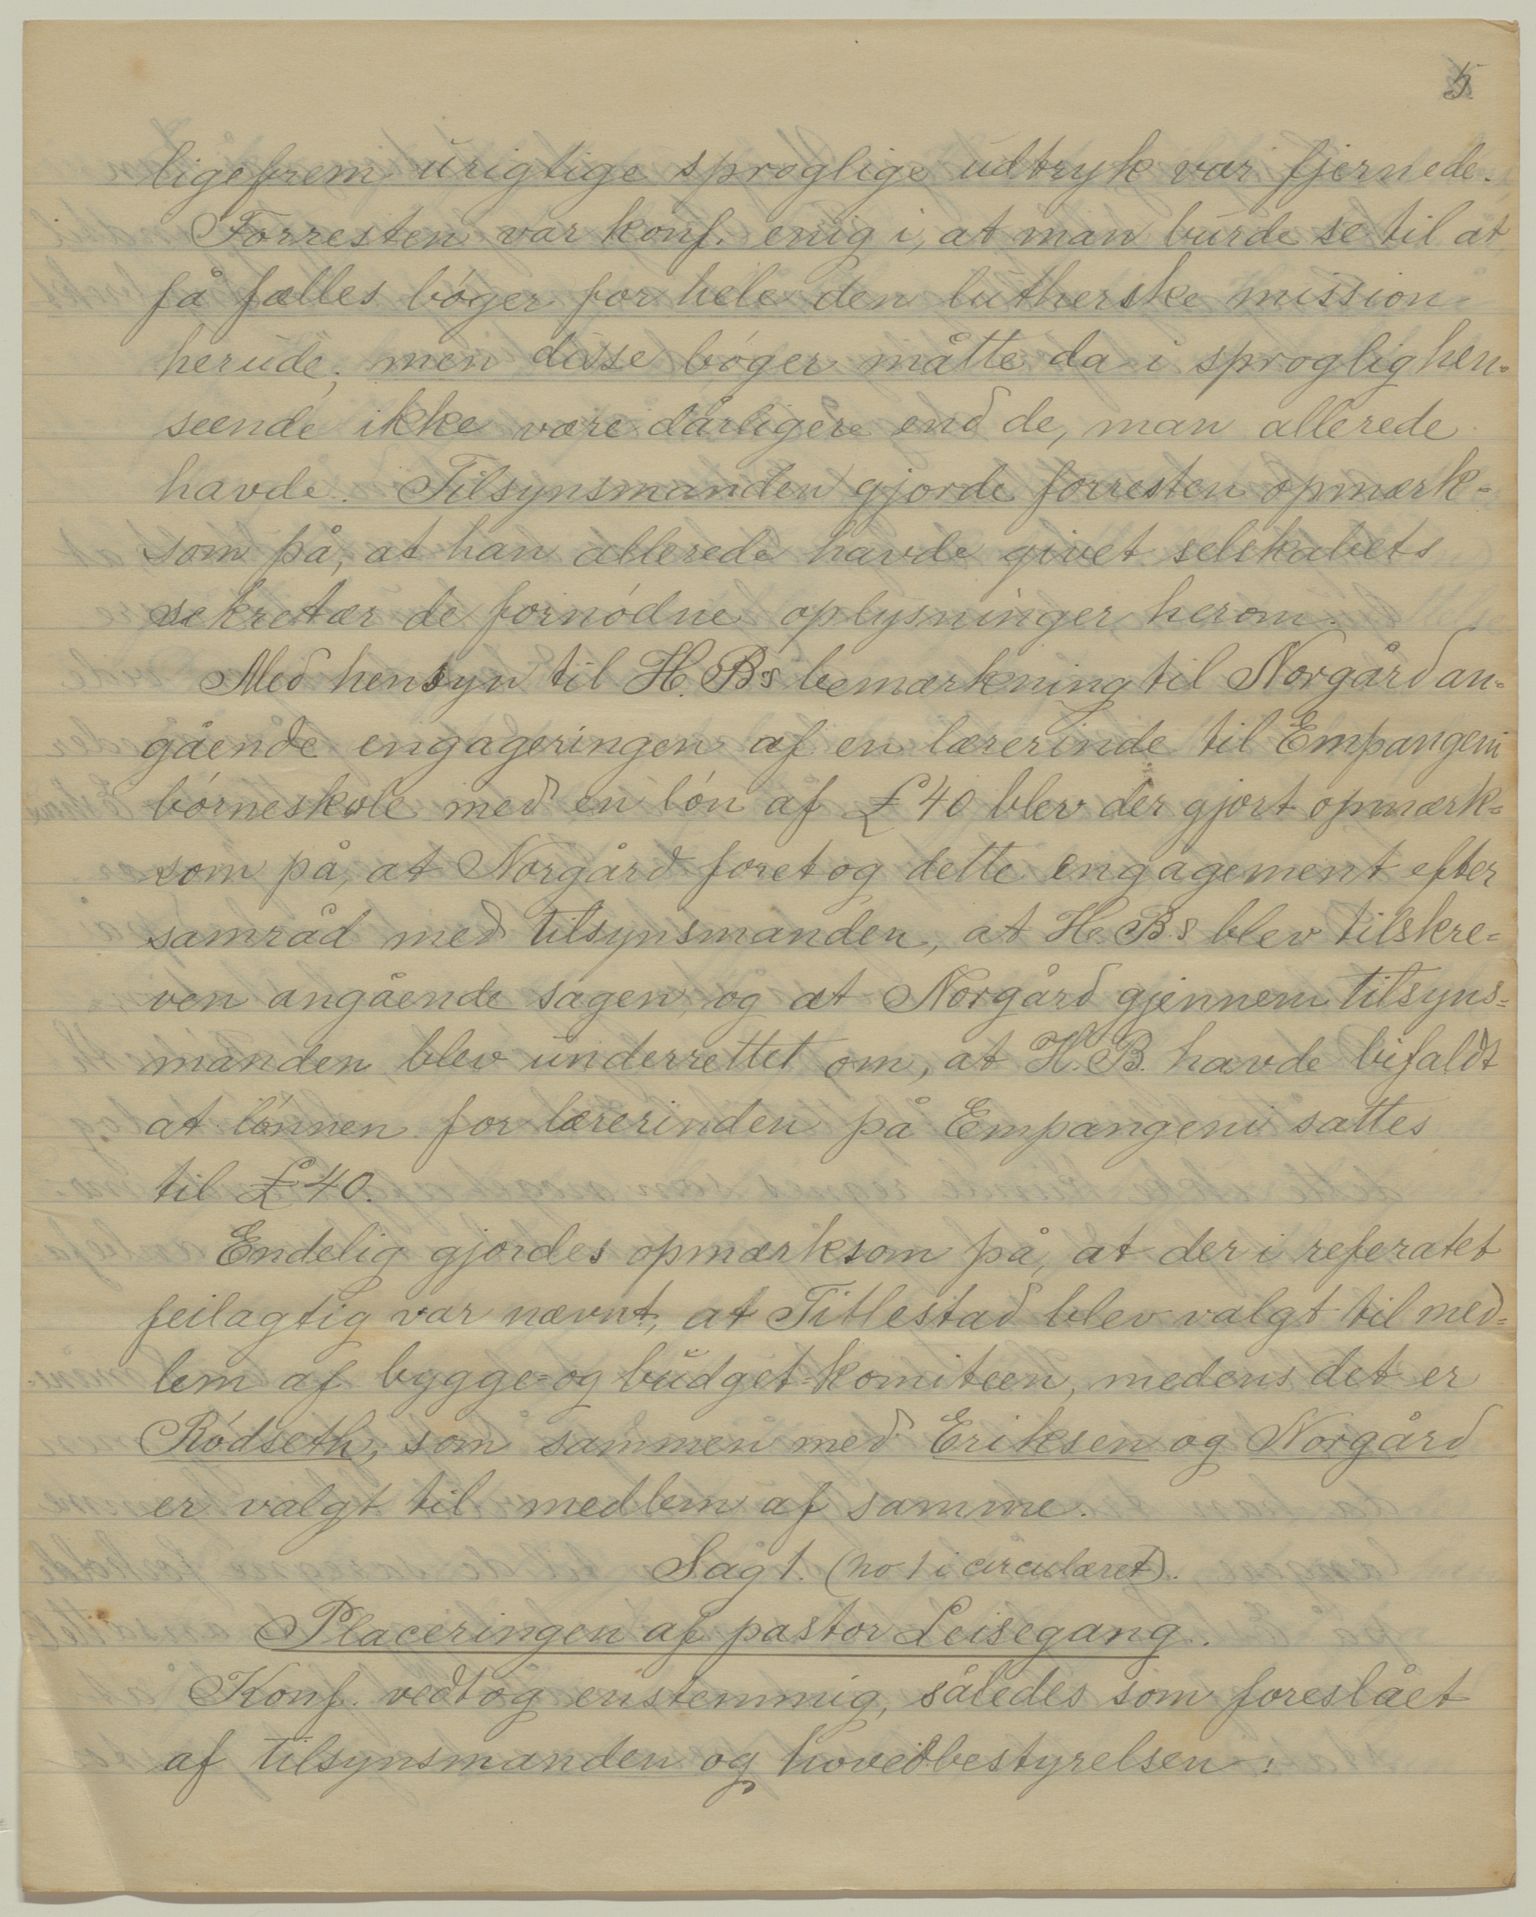 5
ligefrem urigtige sproglige udtryk var fjernede.
Forresten var konf. enig i, at man burde se til at
få fælles bøger for hele den lutherske mission
herude, men disse bøger måtte da i sproglig hen-
seende ikke være dårligere end de, man allerede
havde. Tilsynsmanden gjorde forresten opmærk-
som på, at han allerede havde givet selskabets
sekretær de fornødne oplysninger herom.
Med hensyn til H. B's bemærkning til Norgård an-
gående engageringen af en lærerinde til Empangeni
børneskole med en løn af £40 blev der gjort opmærk-
som på, at Norgård foretog dette engagement efter
samråd med tilsynsmanden, at H. B.s blev tilskre-
ven angående sagen og at Norgård gjennem tilsyns-
manden blev underrettet om, at H. B. havde bifaldt
at lønnen for lærerinden på Empangeni sattes
til £40.
Endelig gjordes opmærksom på, at der i referatet
feilagtig var nævnt, at Titlestad blev valgt til med-
lem af bygge- og budget-komiteen, medens det er
Rødseth, som sammen med Eriksen og Norgård
er valgt til medlem af samme.
Sag 1. (no 1 i circulæret).
Placeringen af pastor Leisegang.
Konf. vedtog enstemmig, således som foreslået
af tilsynsmanden og hovedbestyrelsen: